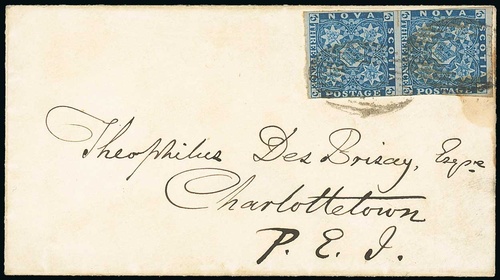 NOVA SCOTIA THREE PENCE POSTAGE 3 3 3 3
NOVA SCOTIA THREE PENCE POSTAGE 3 3 3 3
Theophilus Des Brisay, Esqre
Charlottetown
P. E. I.